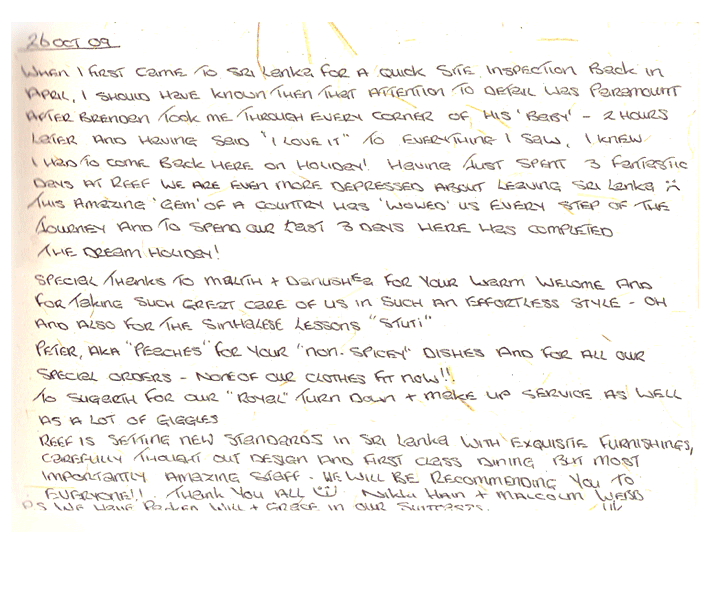 26 OCT 09
WHEN I FIRST CAME TO SRI LANKA FOR A QUICK SITE INSPECTION BACK IN
APRIL, I SHOULD HAVE KNOWN THEN THAT ATTENTION TO DETAIL WAS PARAMOUNT
AFTER BRENDEN TOOK ME THROUGH EVERY CORNER OF HIS 'BABY' - 2 HOURS
LATER AND HAVING SAID "I LOVE IT" TO EVERYTHING I SAW, I KNEW
I HAD TO COME BACK HERE ON HOLIDAY! HAVING JUST SPENT 3 FANTASTIC
DAYS AT REEF WE ARE EVEN MORE DEPRESSED ABOUT LEAVING SRI LANKA
THIS AMAZING 'GEM' OF A COUNTRY HAS 'WOWED' US EVERY STEP OF THE
JOURNEY AND TO SPEND OUR LAST 3 DAYS HERE HAS COMPLETED
THE DREAM HOLIDAY!
SPECIAL THANKS TO MALITH + DANUSHKA FOR YOUR WARM WELOME AND
FOR TAKING SUCH GREAT CARE OF US IN SUCH AN EFFORTLESS STYLE - OH
AND ALSO FOR THE SINHALESE LESSONS "STUTI"
PETER, AKA "PEACHES" FOR YOUR "NON-SPICEY" DISHES AND FOR ALL OUR
SPECIAL ORDERS - NONE OF OUR CLOTHES FIT NOW!!
TO SUGARTH FOR OUR "ROYAL" TURN DOWN + MAKE UP SERVICE AS WELL
AS A LOT OF GIGGLES
REEF IS SETTING NEW STANDARDS IN SRI LANKA WITH EXQUISTIE FURNISHINGS,
CAREFULLY THOUGHT OUT DESIGN AND FIRST CLASS DINING BUT MOST
IMPORTANTLY AMAZING STAFF - WE WILL BE RECOMMENDING YOU TO
EVERYONE!! THANK YOU ALL NIKKI HAIN + MALCOLM WEBB
PS WE HAVE PACKED WILL + GRACE IN OUR SUITCASES.